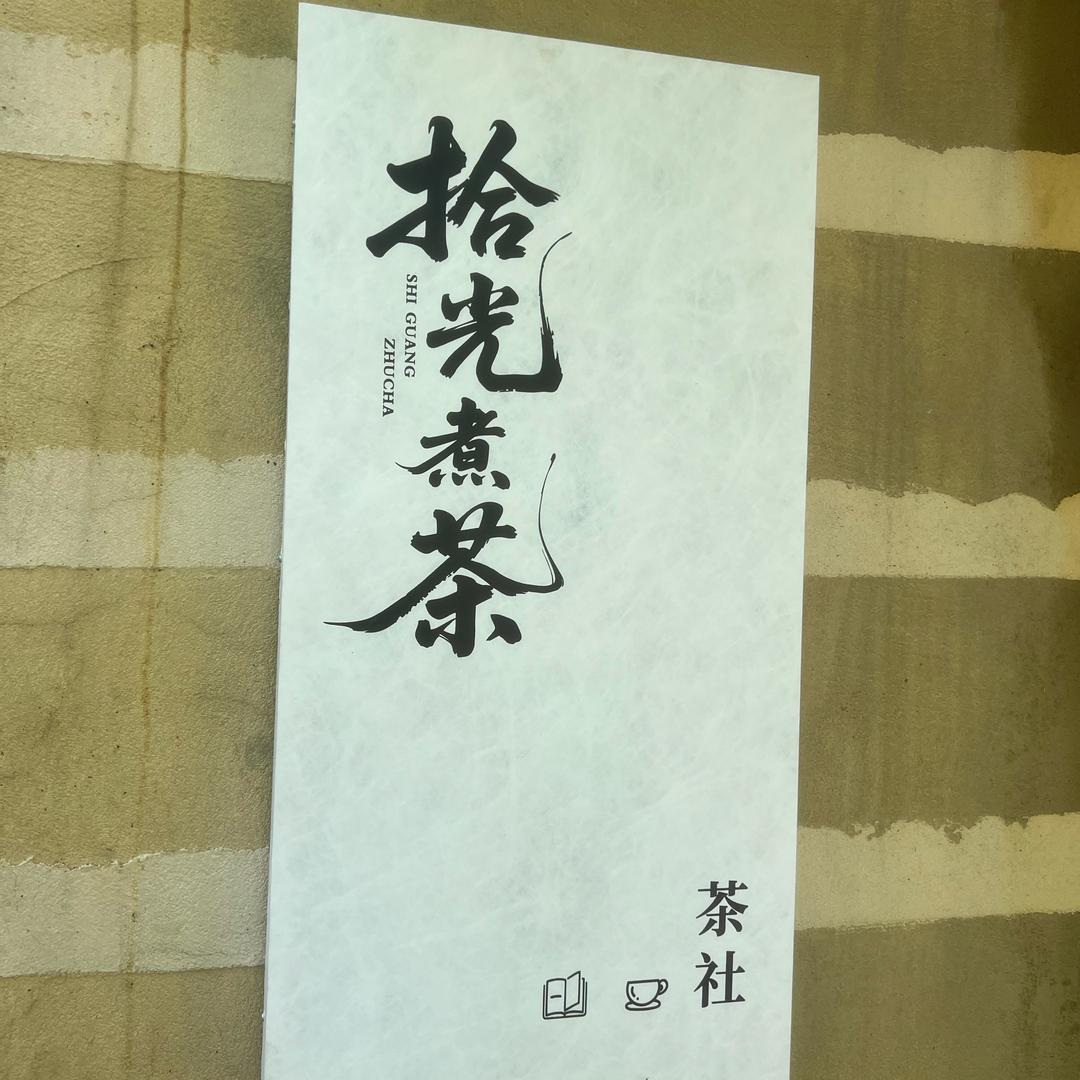 拾光煮茶
SHI GUANG
ZHUCHA
茶社